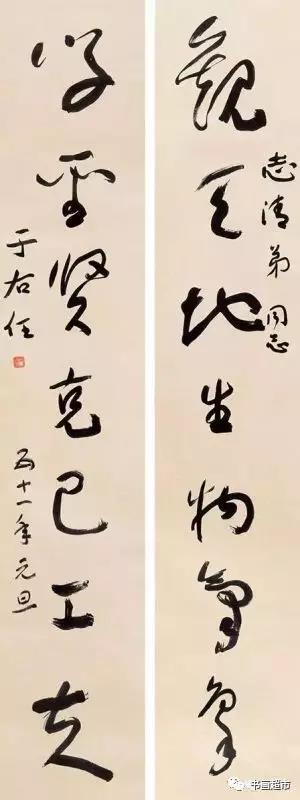 观天地生物气象
志清弟同志
学圣贤克己工夫
于右任
五十一年元旦
书画超市